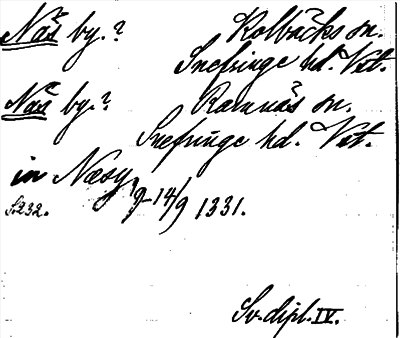 Näs by.? Kolbäcks sn.
Snefringe hd. Vst.
Näs by.? Ramnäs sn.
Snefringe hd. Vst.
in Næsy 9-14/9 1331.
S. 232.
Sv. dipl. IV.